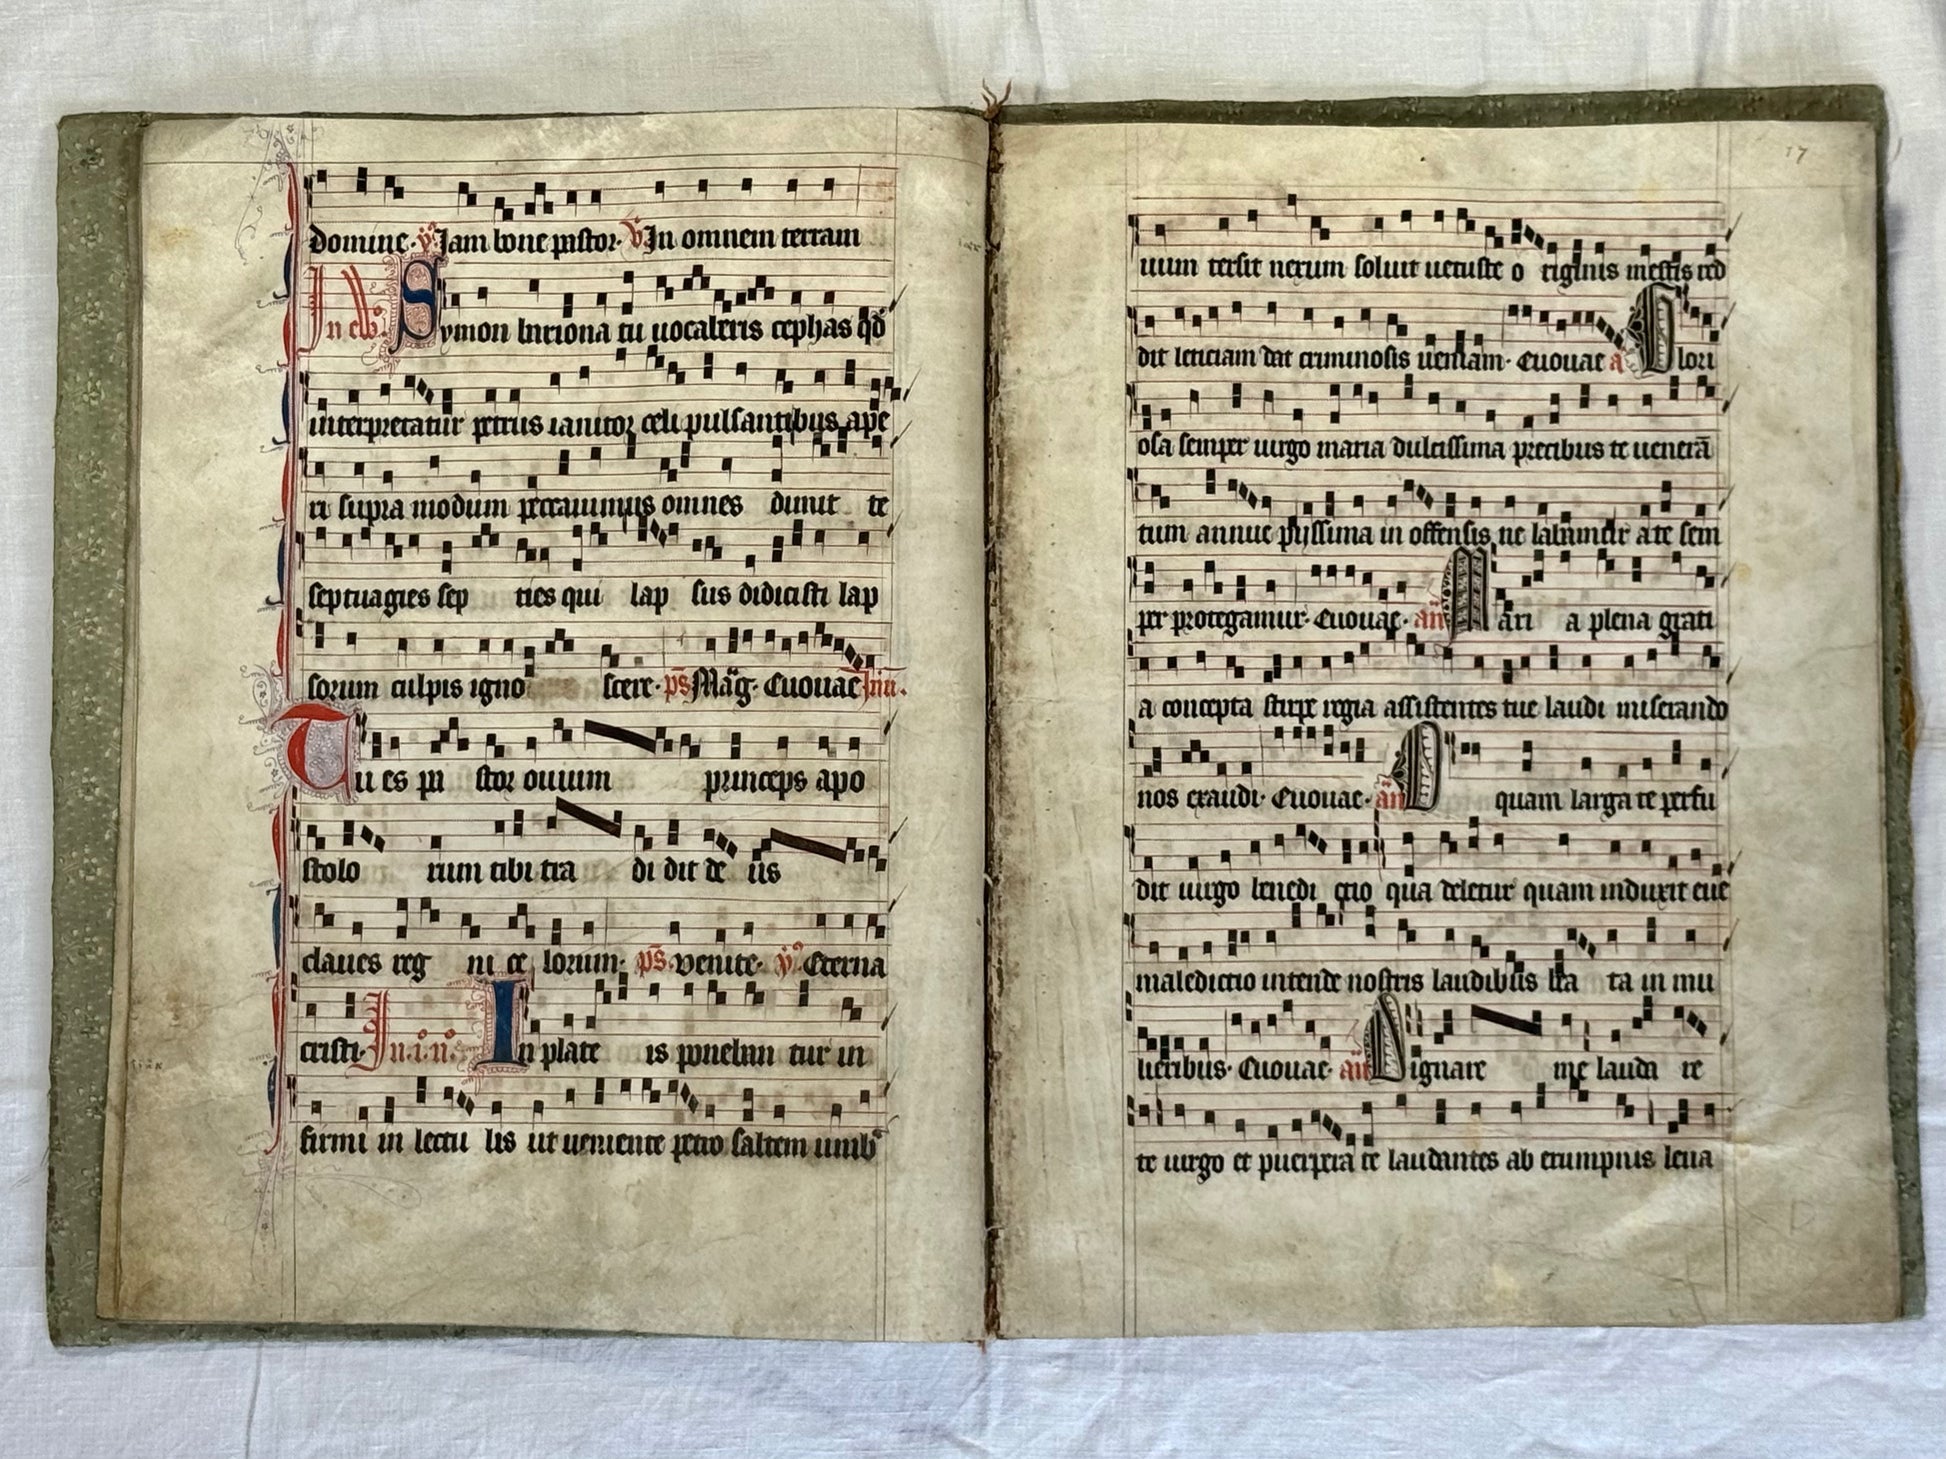 domine. V. Jam bone pastor. V. In omnem terram
In ev̄. Symon bariona tu uocaberis cephas qd̄
interpretatur petrus ianitor celi pulsantibus ape
ri supra modum peccauimus omnes dimit te
septuagies sep ties qui lap sus didicisti lap
sorum culpis igno scere. ps̄ Māg. Euouae Inū.
Tu es pa stor ouium princeps apo
stolo rum tibi tra di dit de us
claues reg ni ce lorum. ps̄. venite. ẏ. Eterna
cristi. In .i. n°. In plate is poneban tur in
firmi in lectu lis ut ueniente petro saltem umbͣ
17
uum tersit nexum soluit uetuste o riginis mestis red
dit leticiam dat criminosis ueniam. Euouae a Glori
osa semper uirgo maria dulcissima precibus te uenerā
tum annue pijssima in offensis ne labamur a te sem
per protegamur. Euouae. an̄ Mari a plena grati
a concepta stirpe regia assistentes tue laudi miserando
nos exaudi. Euouae. an̄ O quam larga te perfu
dit uirgo benedi ctio qua deletur quam induxit eue
maledictio intende nostris laudibus bea ta in mu
lieribus. Euouae. an̄ Dignare me lauda re
te uirgo et puerpera te laudantes ab erumpnis leua